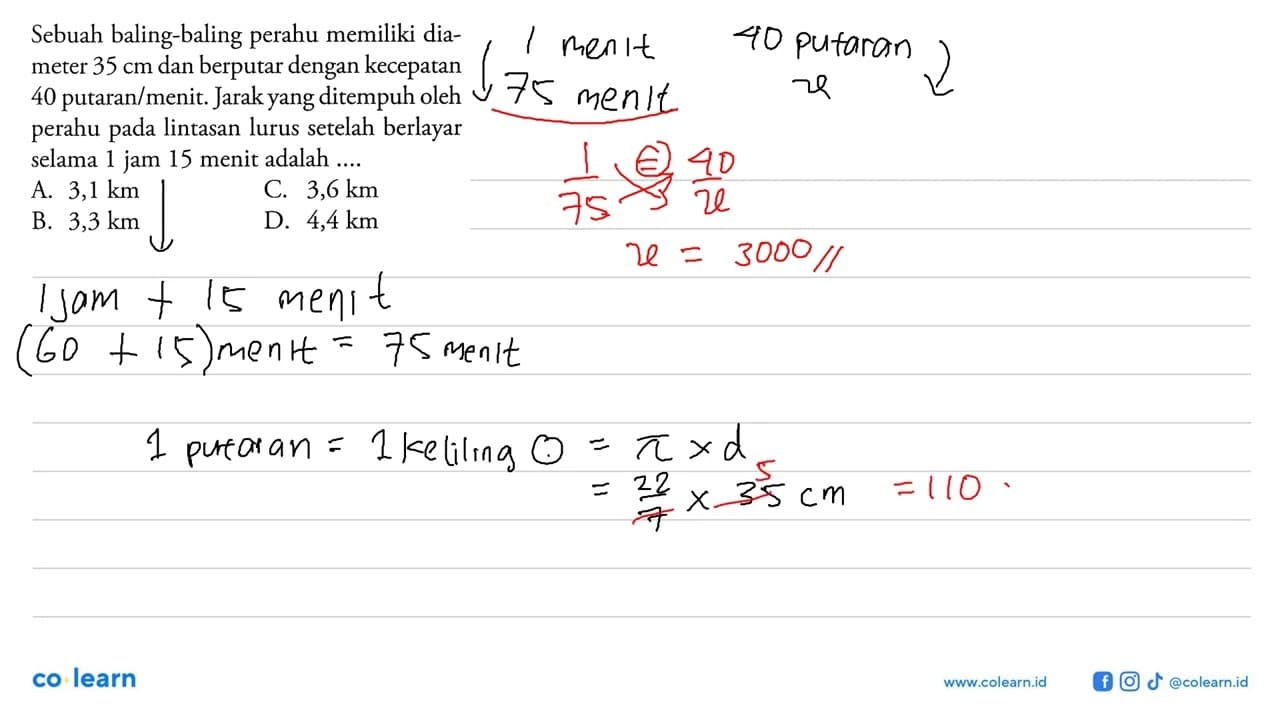 Sebuah baling-baling perahu memiliki dia-
meter 35 cm dan berputar dengan kecepatan
40 putaran/menit. Jarak yang ditempuh oleh
perahu pada lintasan lurus setelah berlayar
selama 1 jam 15 menit adalah ....
A. 3,1 km C. 3,6 km
B. 3,3 km D. 4,4 km
1 menit 40 putaran
75 menit x
1/75 = 40/x
x = 3000 //
1 jam + 15 menit
(60 + 15) menit = 75 menit
1 putaran = 1 keliling ⊙ = π × d
= 22/7 × 35 cm = 110
5
co learn
www.colearn.id @colearn.id